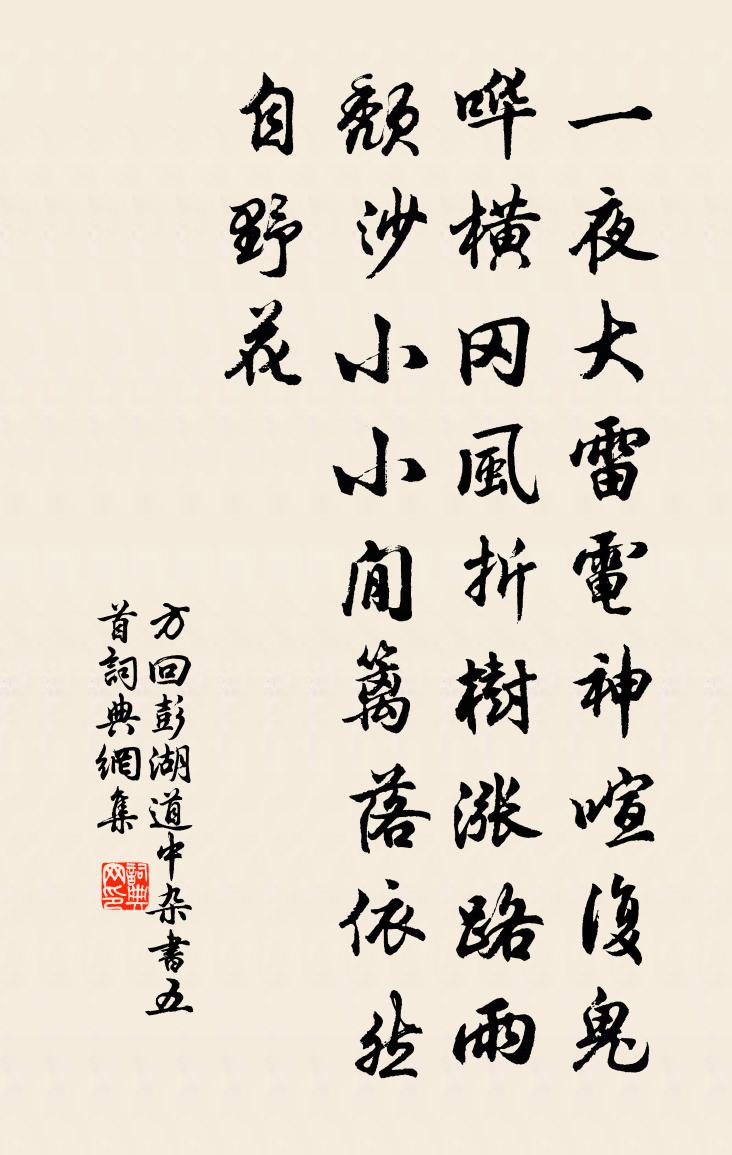 一夜大雷電神喧復鬼
哗橫冈風折樹漲路雨
颓沙小小閒籬落依然
自野花
方回彭湖道中杂書五
首詞典網集
詞典网印